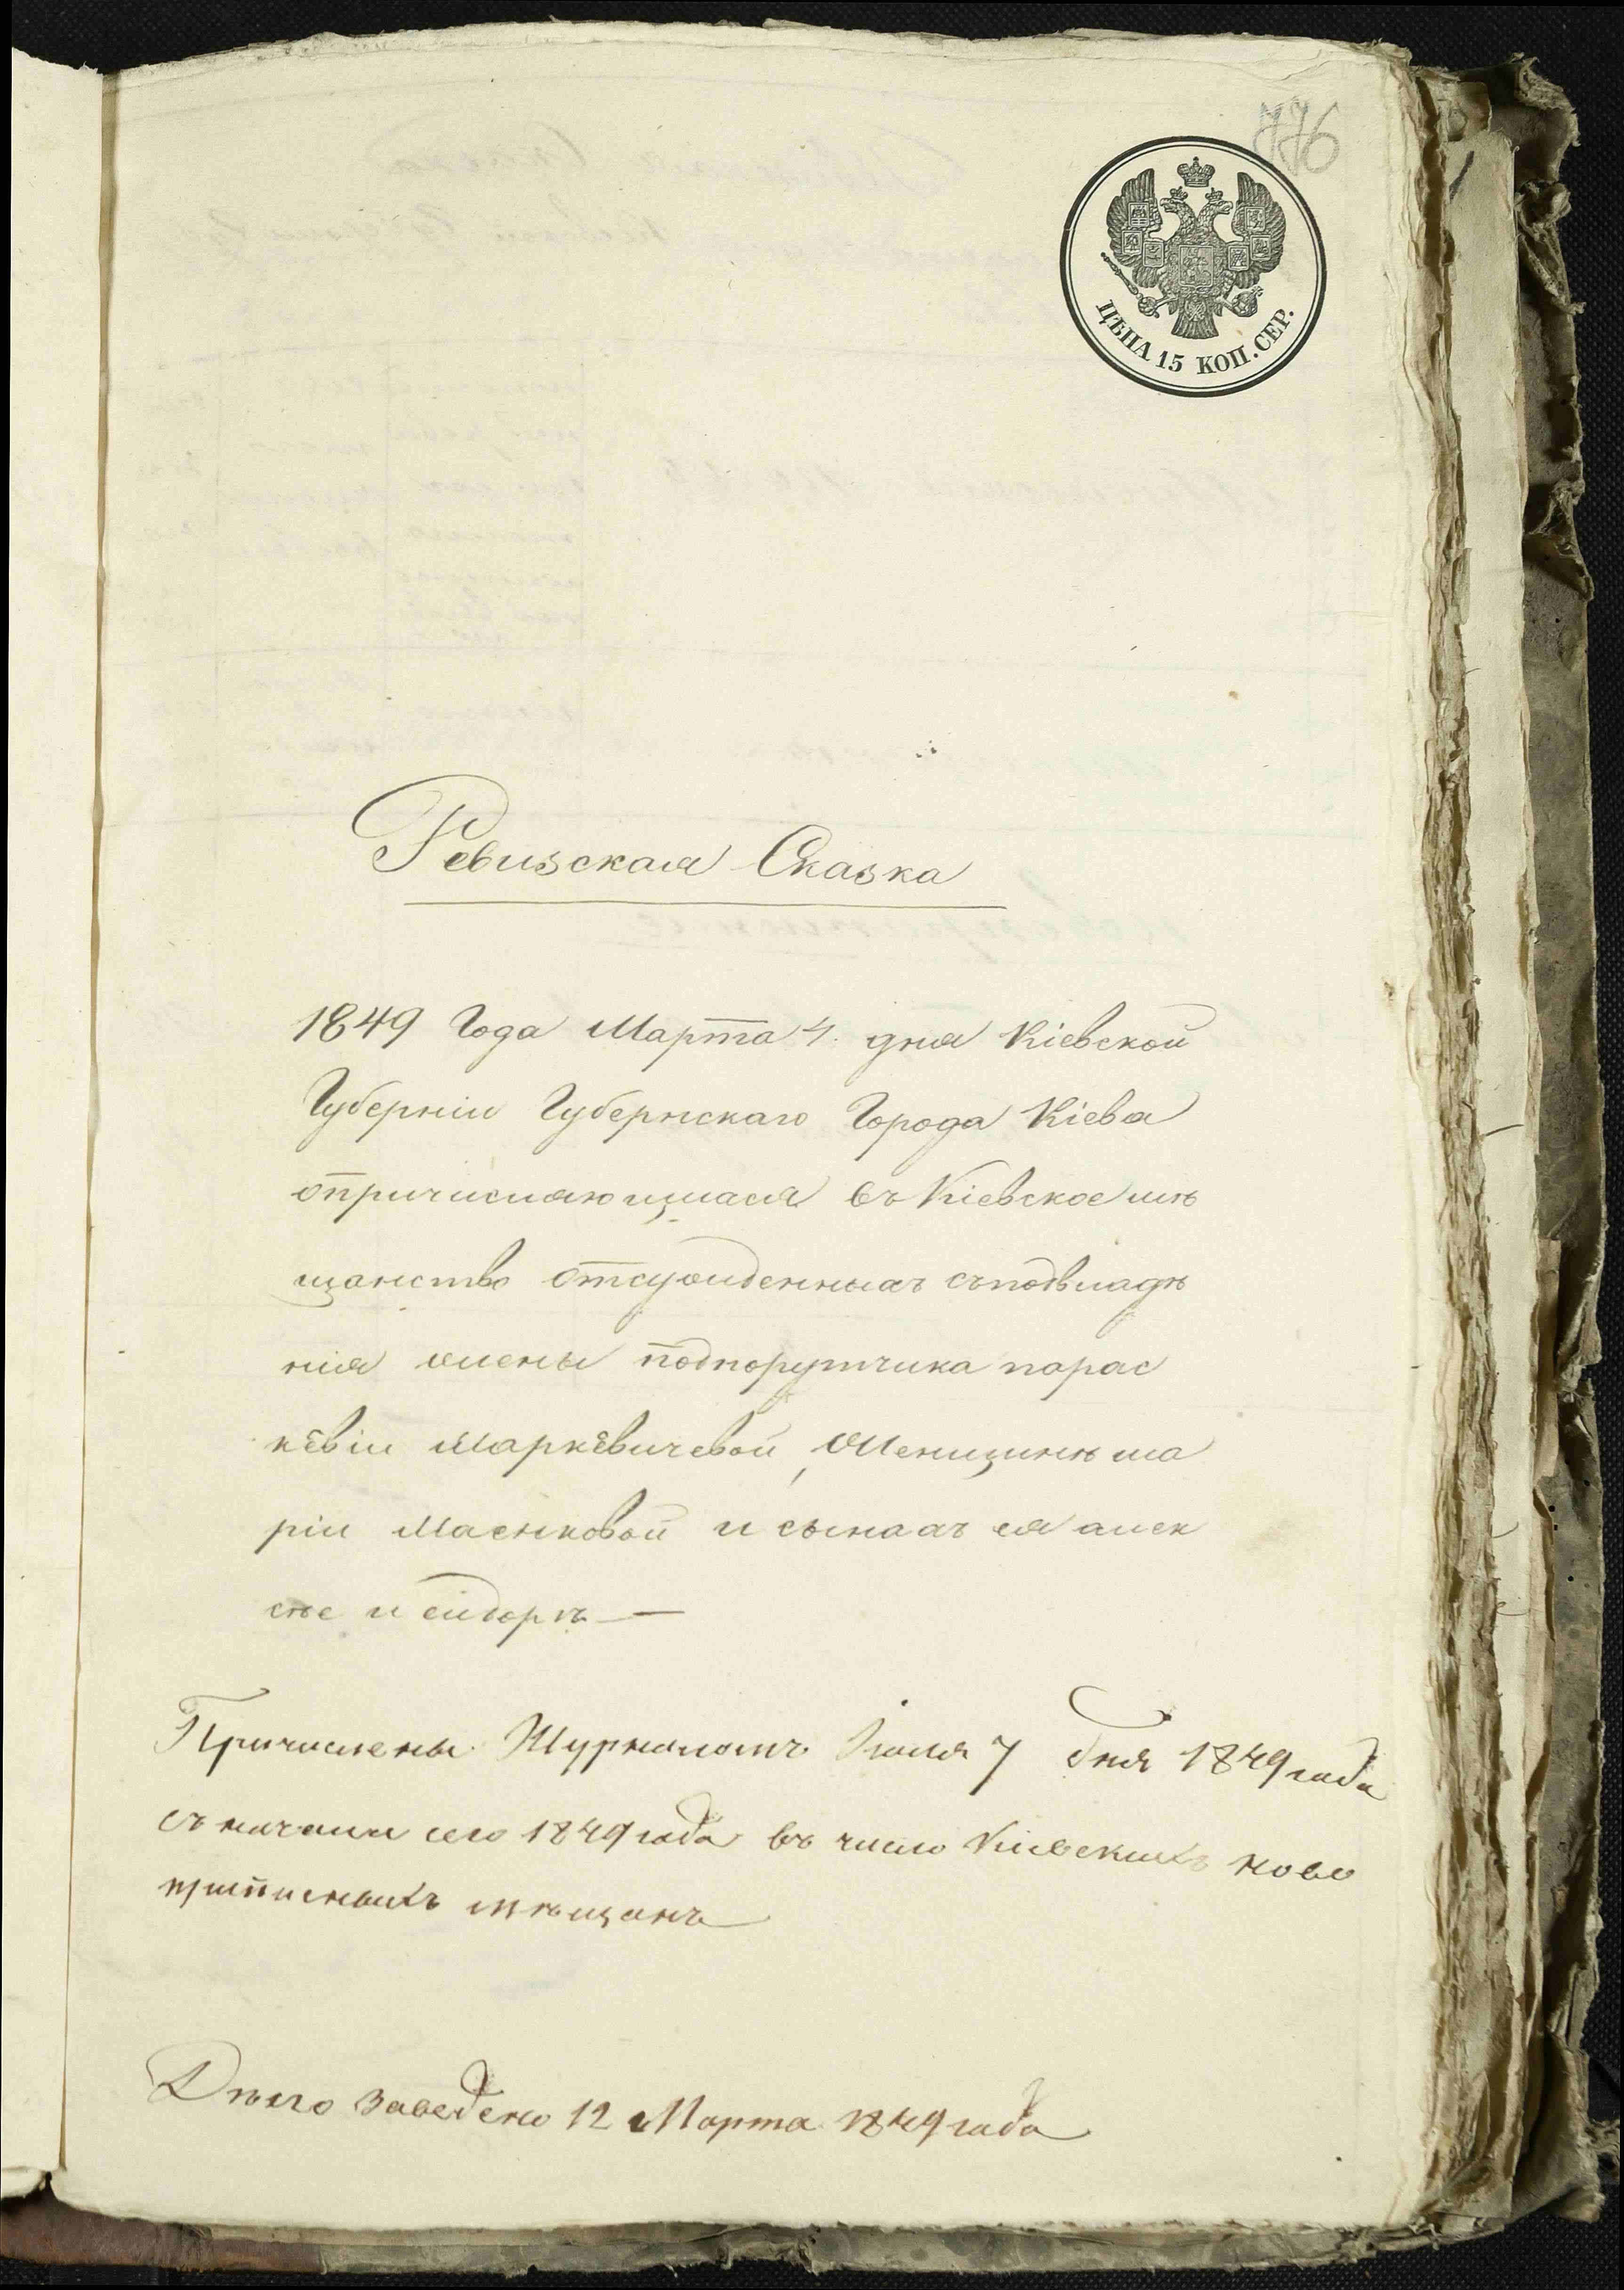 776
ЦѢНА 15 КОП. СЕР.
Ревизская Сказка
1849 Года Марта 4. дня Кіевской
Губерніи Губернскаго Города Кіева
опричисляющихся въ Кіевское мѣ
щанство отсужденныхъ съподвладѣ
нія жены подпорутчика парас
кевіи Маркевичевой, Женщинѣ ма
ріи Масюковой и сынахъ ея алек
сѣе и сидорѣ —
Причислены Журналомъ Іюля 7 дня 1849 года
съ начала сего 1849 года въ число Кіевскихъ ново
приписныхъ мѣщанъ
Дѣло заведено 12 Марта 1849 года